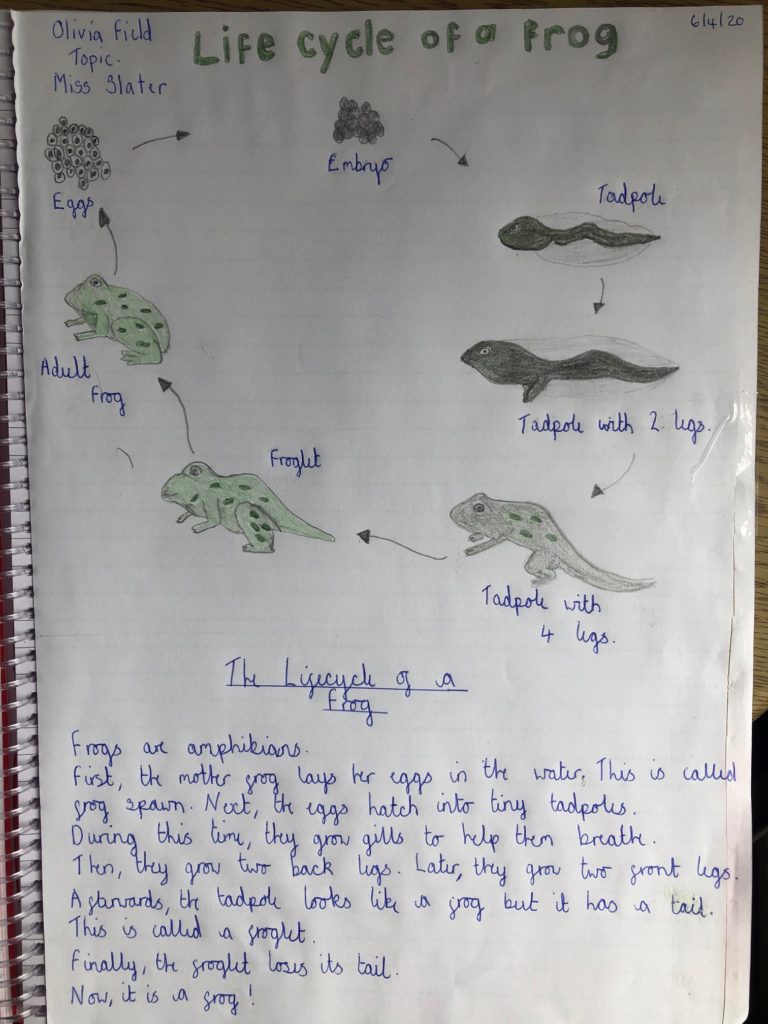 Olivia Field
Topic.
Miss Slater
Life cycle of a frog
6/4/20
Eggs
Embryo
Tadpole
Tadpole with 2 legs.
Tadpole with
4 legs.
Froglet
Adult
Frog
The Lifecycle of a
Frog
Frogs are amphibians.
First, the mother frog lays her eggs in the water. This is called
frog spawn. Next, the eggs hatch into tiny tadpoles.
During this time, they grow gills to help them breathe.
Then, they grow two back legs. Later, they grow two front legs.
Afterwards, the tadpole looks like a frog but it has a tail.
This is called a froglet.
Finally, the froglet loses its tail.
Now, it is a frog!